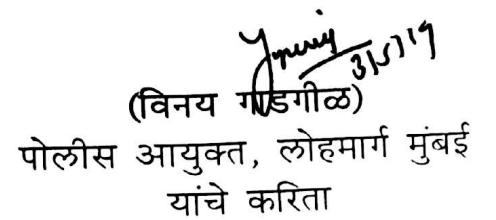 3/5/19
(विनय गाडगीळ)
पोलीस आयुक्त, लोहमार्ग मुंबई
यांचे करिता